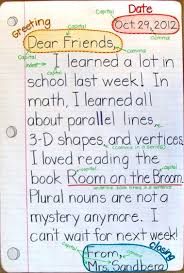 Capital
Date
Greeting
Capital
Oct. 29, 2012
comma
Dear Friends,
comma
Capital
indent
I learned a lot in
school last week! In
math, I learned all
about parallel lines,
3-D shapes, and vertices.
I loved reading the
book Room on the Broom.
Plural nouns are not a
mystery anymore. I
can't wait for next week!
Capital
comma
closing
From,
Mrs. Sandberg